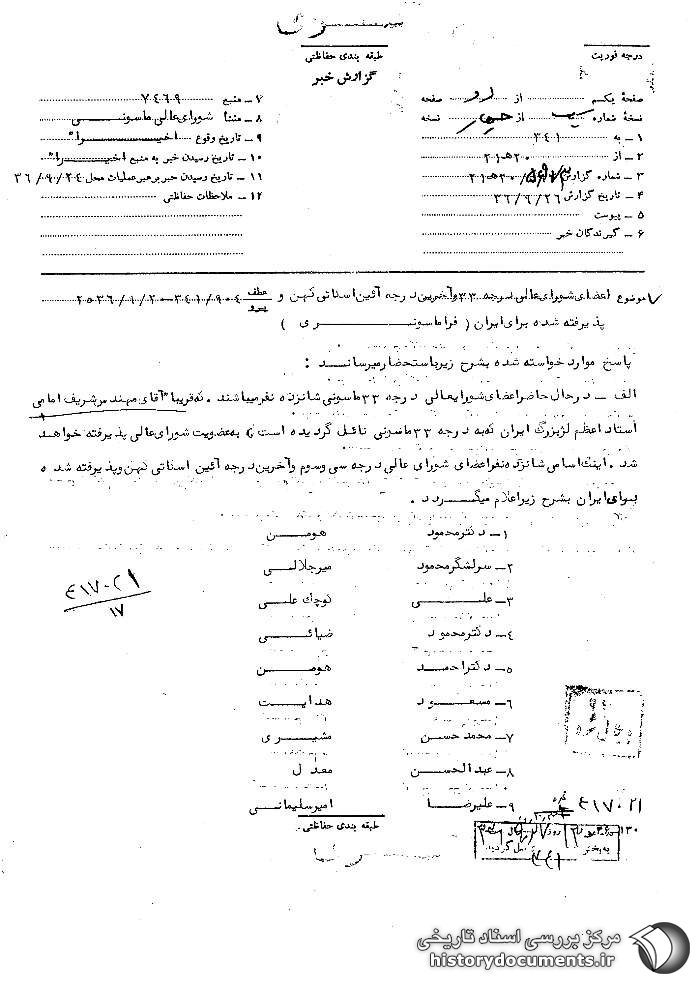 طبقه بندی حفاظتی
درجه فوریت
گزارش خبر
صفحهٔ یکم از دو صفحه
نسخهٔ شماره از نسخه
۱ ـ به ۳۴۱
۲ ـ از ۲۰هـ۲۱
۳ ـ شماره گزارش ۲۰هـ۲۱
۴ ـ تاریخ گزارش ۳۶/۹/۲۶
۵ ـ پیوست
۶ ـ گیرندگان خبر
۷ ـ منبع ۷۴۶۹
۸ ـ منشأ شورای عالی ماسونی
۹ ـ تاریخ وقوع اخیرا"
۱۰ ـ تاریخ رسیدن خبر به منبع اخیرا"
۱۱ ـ تاریخ رسیدن خبر برهبر عملیات محل ۳۶/۹۰/۲۴
۱۲ ـ ملاحظات حفاظتی
موضوع اعضای شورای عالی درجه ۳۳ و آخرین درجه آئین اسکاتی کهن و عطف پیرو ۳۴۱/۹۰۴ـ۲۵۳۶/۹/۲۰
پذیرفته شده برای ایران ( فراماسونری )
پاسخ موارد خواسته شده بشرح زیر باستحضار میرساند :
الف ـ در حال حاضر اعضای شورایعالی درجه ۳۳ ماسونی شانزده نفر میباشند . که قریبا" آقای مهندس شریف امامی
استاد اعظم لژ بزرگ ایران که به درجه ۳۳ ماسونی نائل گردیده است ) به عضویت شورای عالی پذیرفته خواهد
شد . اینک اسامی شانزده نفر اعضای شورای عالی درجه سی و سوم و آخرین درجه آئین اسکاتی کهن و پذیرفته شده
برای ایران بشرح زیر اعلام میگردد .
۱ ـ دکتر محمود هومن
۲ ـ سرلشگر محمود میرجلالی
۳ ـ علی کوچک علی
۴ ـ دکتر محمود ضیائی
۵ ـ دکتر احمد هومن
۶ ـ مسعود هدایت
۷ ـ محمد حسن مشیری
۸ ـ عبدالحسن معدل
۹ ـ علیرضا امیرسلیمانی
۴۱۷۰۲۱
۱۷
۴۱۷۰۲۱
طبقه بندی حفاظتی
مرکز بررسی اسناد تاریخی
historydocuments.ir